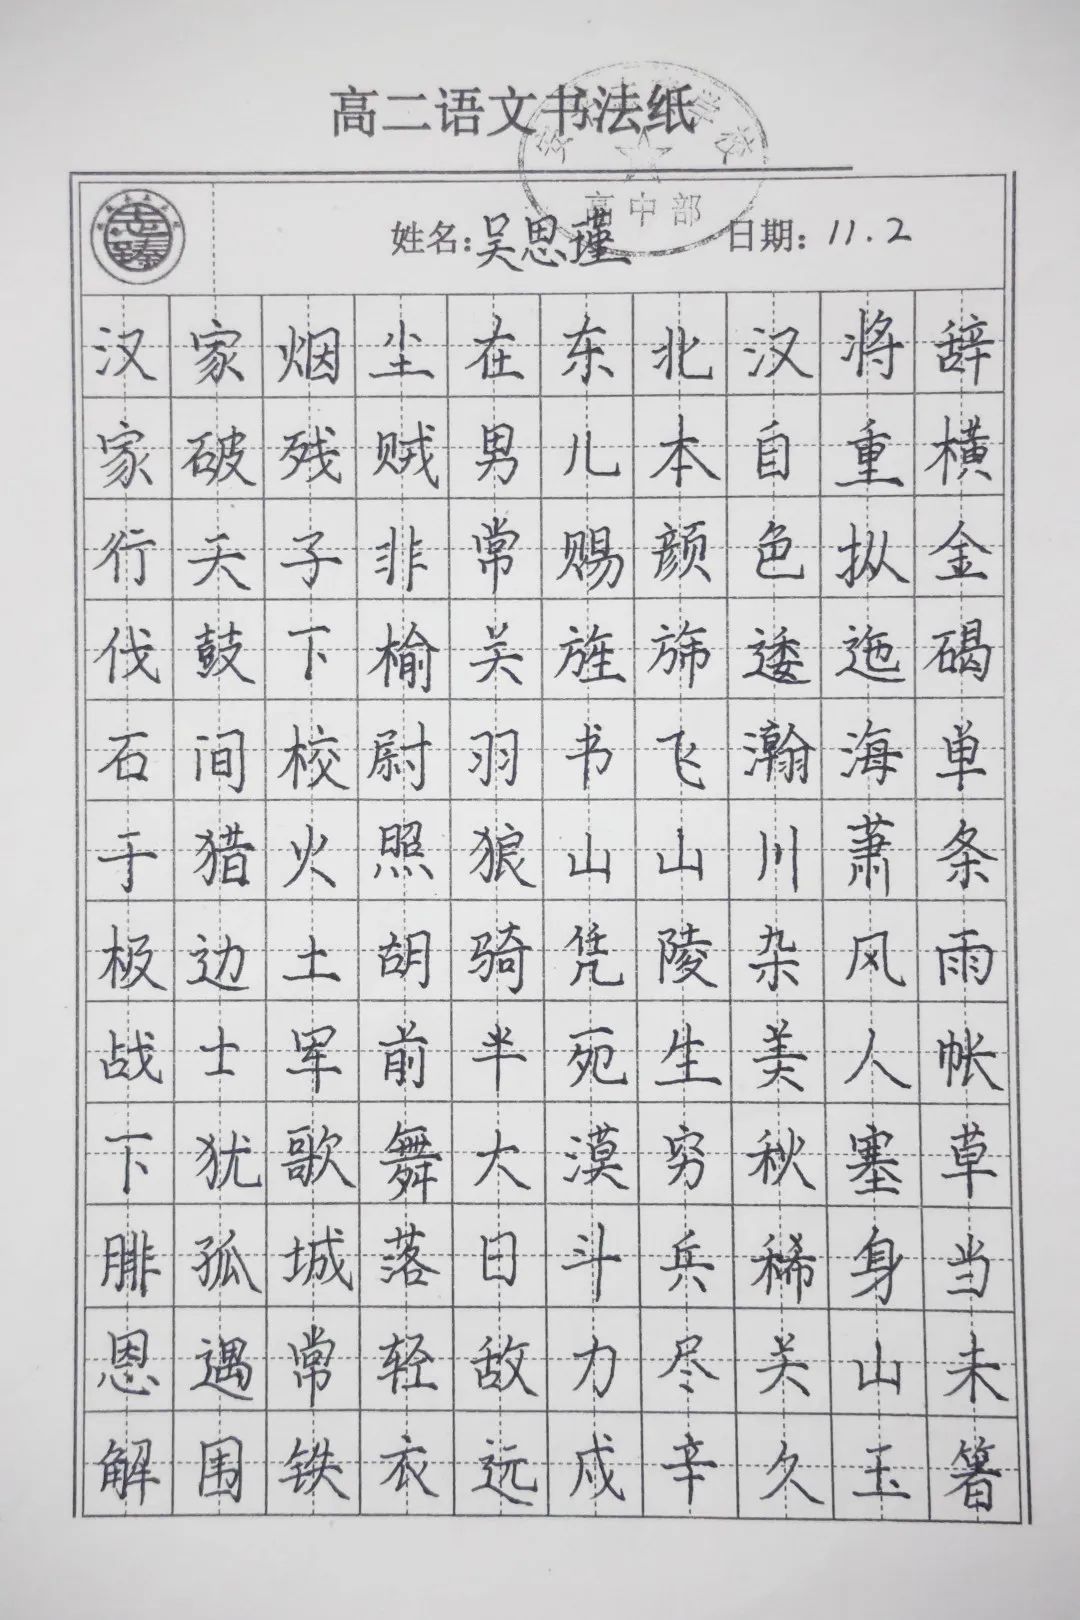 高二语文书法纸
学校
高中部
志臻
姓名:吴思瑾 日期:11.2
汉家烟尘在东北汉将辞
家破残贼男儿本自重横
行天子非常赐颜色拟金
伐鼓下榆关旌旆逶迤碣
石间校尉羽书飞瀚海单
于猎火照狼山山川萧条
极边土胡骑凭陵杂风雨
战士军前半死生美人帐
下犹歌舞大漠穷秋塞草
腓孤城落日斗兵稀身当
恩遇常轻敌力尽关山未
解围铁衣远戍辛久玉箸